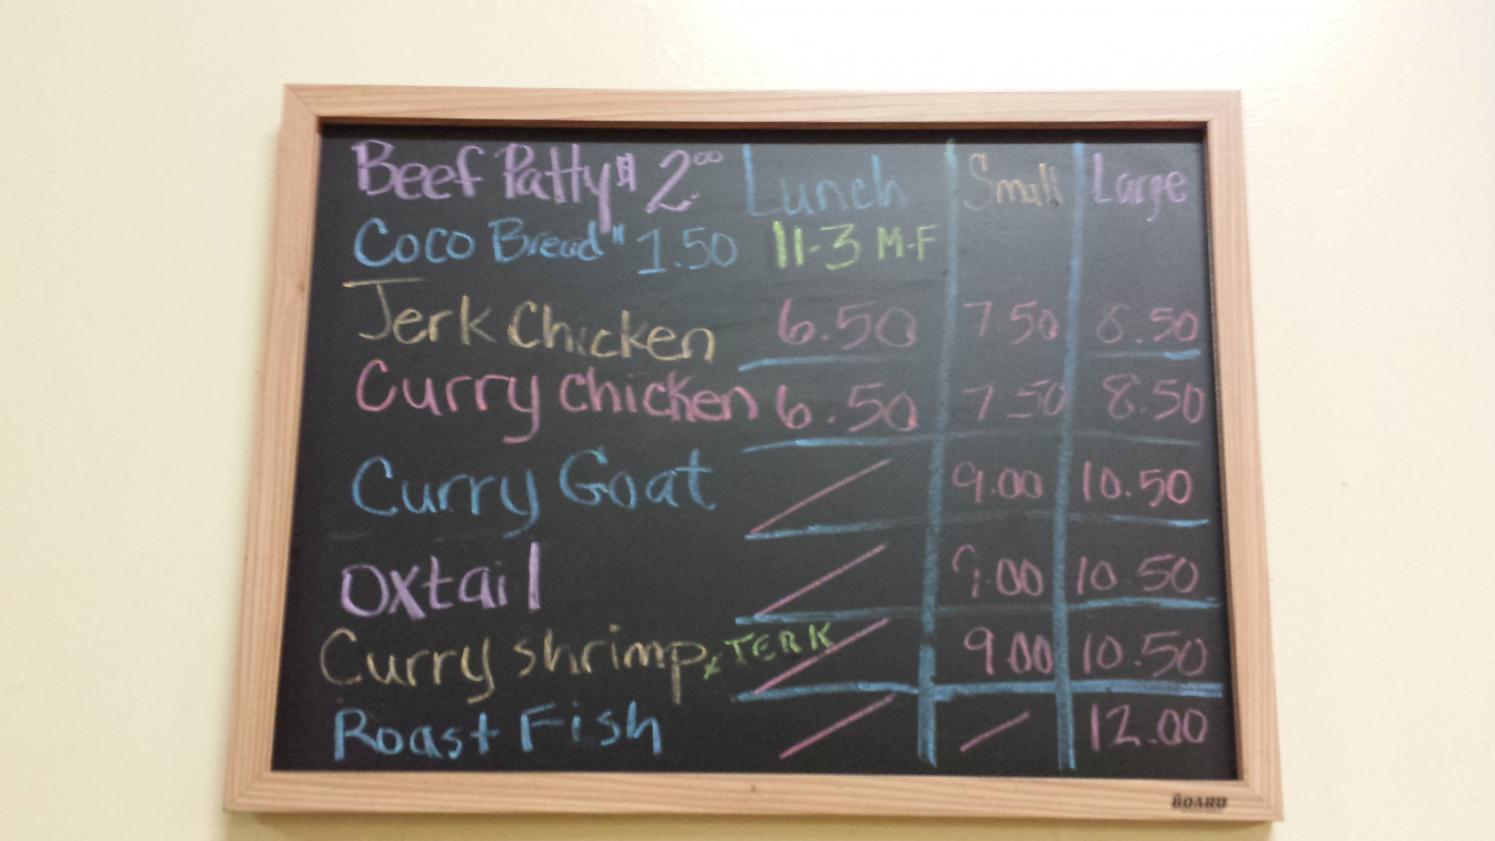 Beef Patty $ 2.00 Lunch Small Large
Coco Bread " 1.50 11-3 M-F
Jerk Chicken 6.50 7.50 8.50
Curry Chicken 6.50 7.50 8.50
Curry Goat / 9.00 10.50
Oxtail / 9.00 10.50
Curry shrimp, x JERK / 9.00 10.50
Roast Fish / / 12.00
BOARD